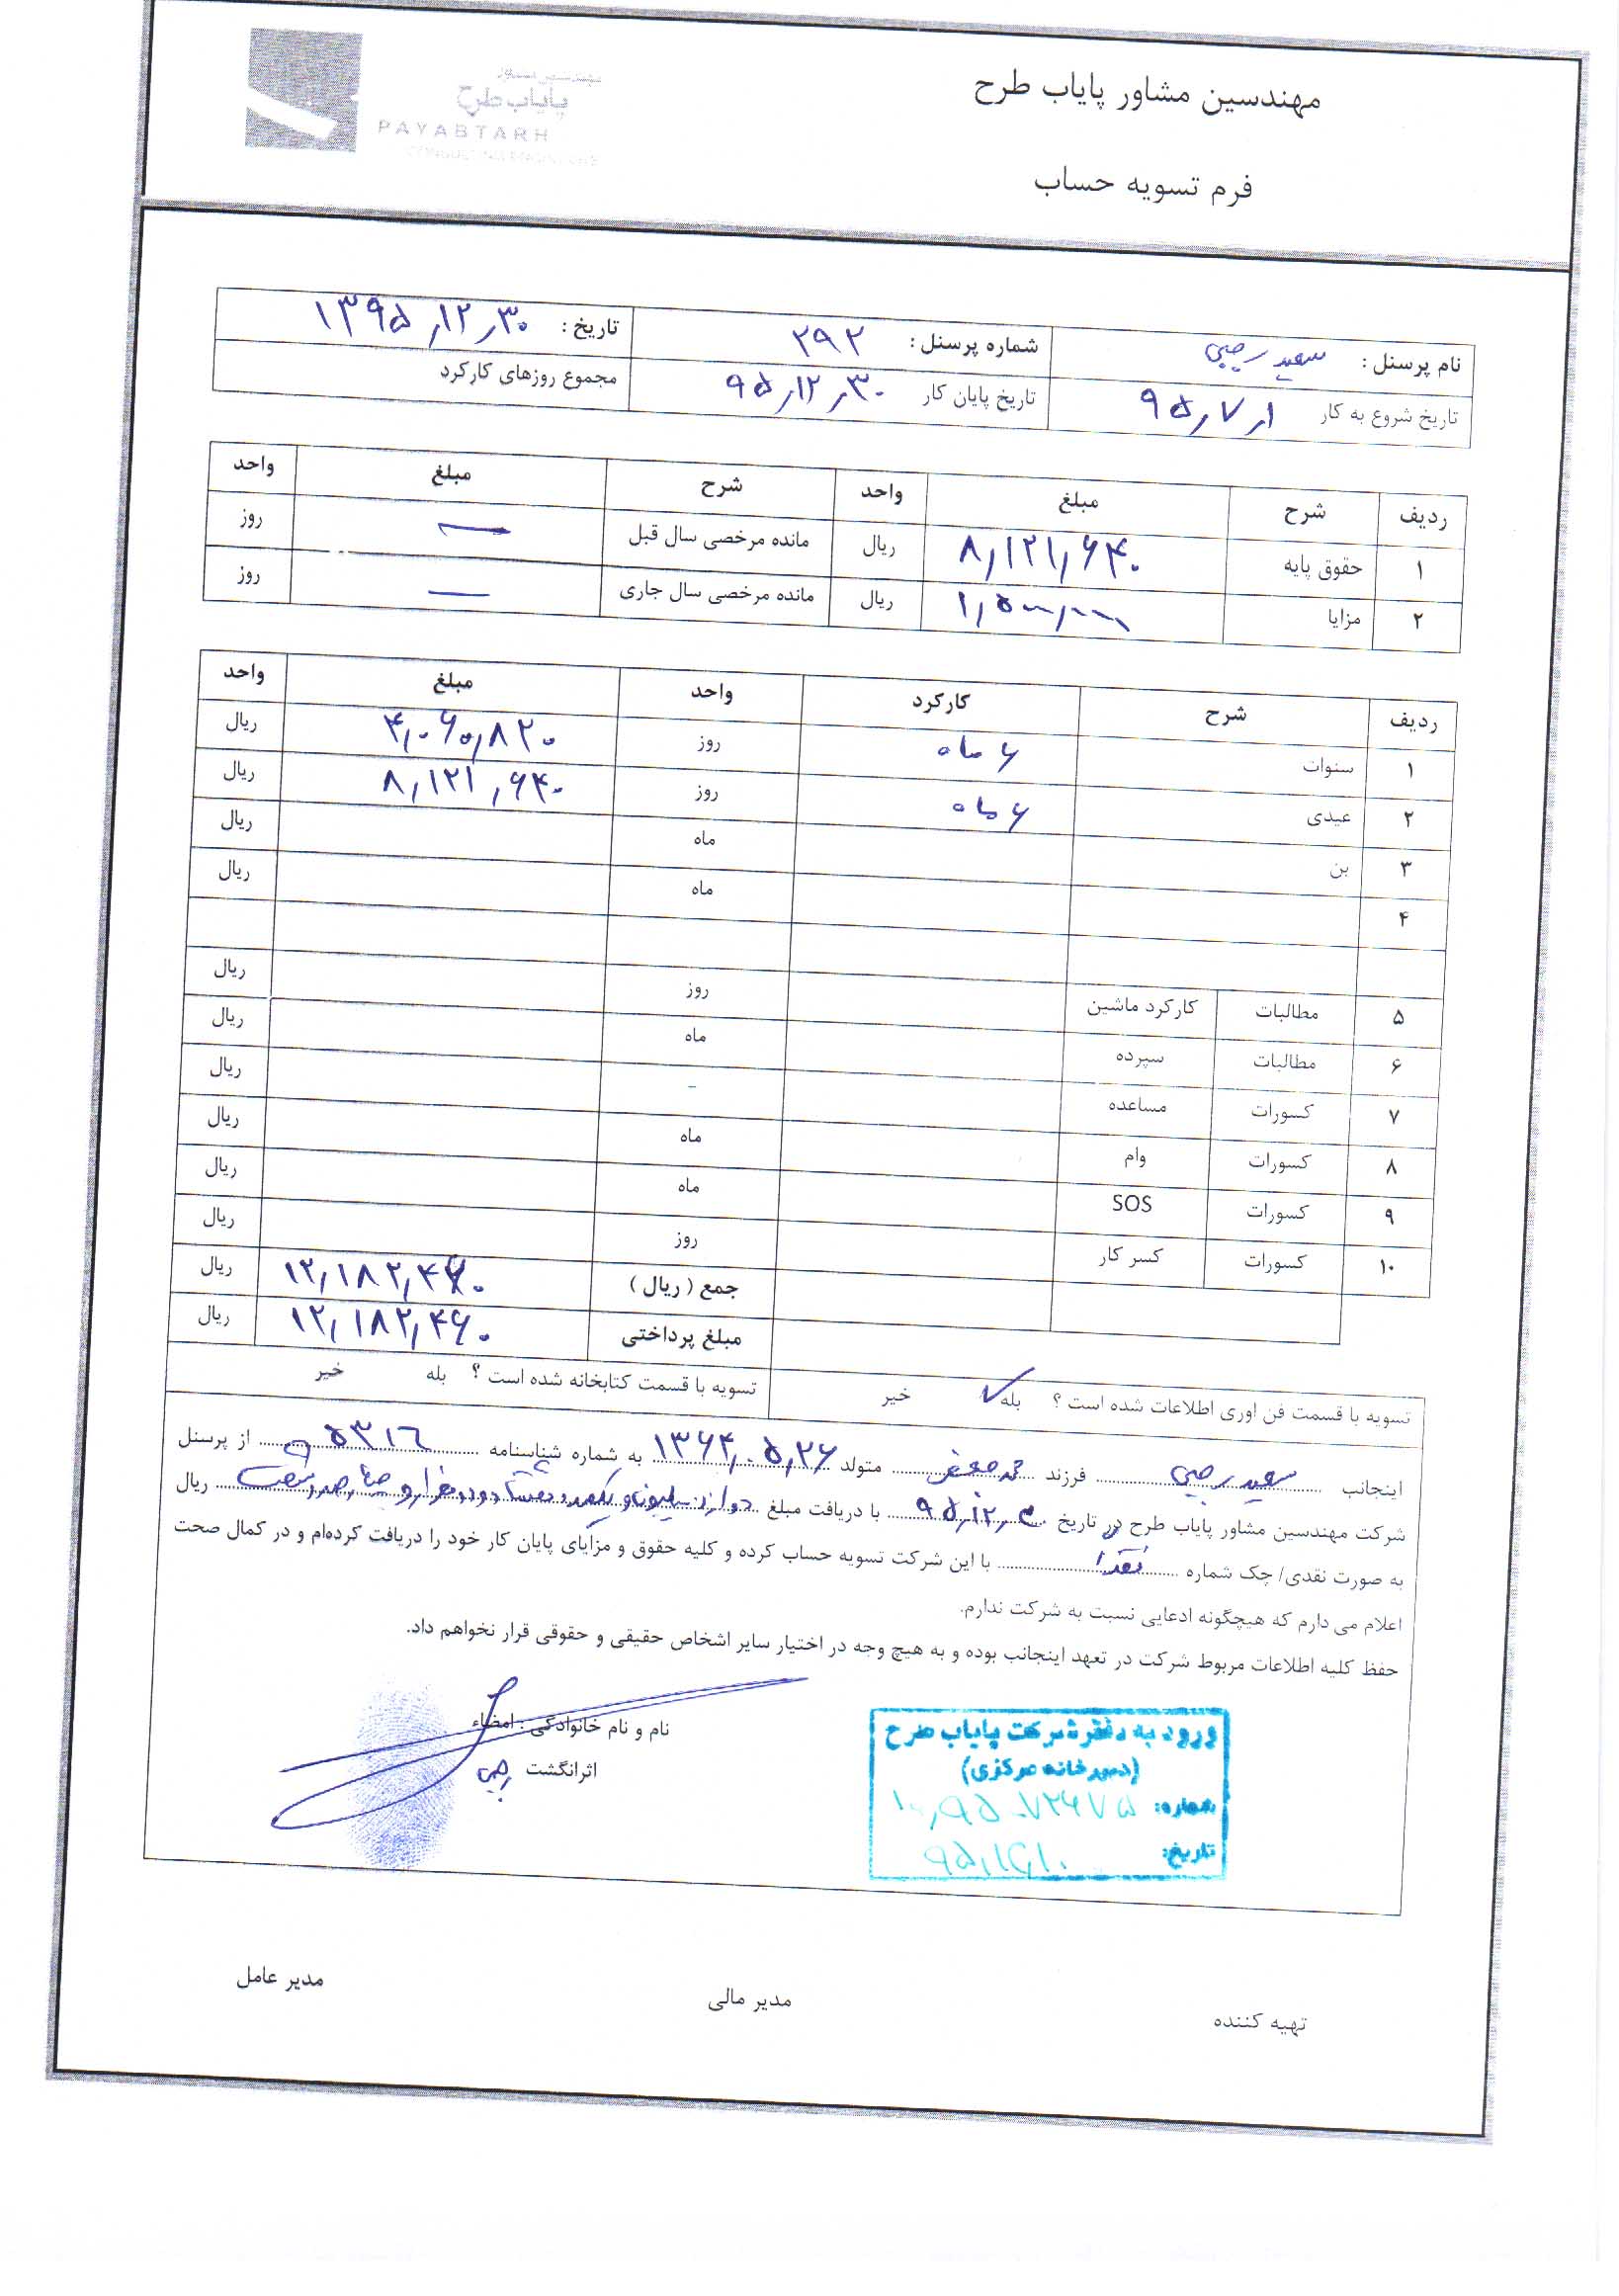 مهندسین مشاور پایاب طرح
پایاب طرح
PAYABTARH
CONSULTING ENGINEERS
فرم تسویه حساب
نام پرسنل : سعید رجبی شماره پرسنل : ۲۹۲ تاریخ : ۱۳۹۵,۱۲,۳۰
تاریخ شروع به کار ۹۵,۷,۱ تاریخ پایان کار ۹۵,۱۲,۳۰ مجموع روزهای کارکرد
ردیف شرح مبلغ واحد شرح مبلغ واحد
۱ حقوق پایه ۸,۱۲۱,۶۴۰ ریال مانده مرخصی سال قبل — روز
۲ مزایا ۱,۵۰۰,۰۰۰ ریال مانده مرخصی سال جاری — روز
ردیف شرح کارکرد واحد مبلغ واحد
۱ سنوات ۶ ماه روز ۴,۰۶۰,۸۲۰ ریال
۲ عیدی ۶ ماه روز ۸,۱۲۱,۶۴۰ ریال
۳ بن ماه ریال
۴ ماه ریال
۵ مطالبات کارکرد ماشین روز ریال
۶ مطالبات سپرده ماه ریال
۷ کسورات مساعده - ریال
۸ کسورات وام ماه ریال
۹ کسورات SOS ماه ریال
۱۰ کسورات کسر کار روز ریال
جمع ( ریال ) ۱۲,۱۸۲,۴۶۰ ریال
مبلغ پرداختی ۱۲,۱۸۲,۴۶۰ ریال
تسویه با قسمت فن اوری اطلاعات شده است ؟ بله ✓ خیر تسویه با قسمت کتابخانه شده است ؟ بله خیر
اینجانب سعید رجبی فرزند محمد جعفر متولد ۱۳۶۴,۰۵,۲۶ به شماره شناسنامه از پرسنل
شرکت مهندسین مشاور پایاب طرح در تاریخ ۹۵,۱۲,۳۰ با دریافت مبلغ دوازده میلیون و یکصد و هشتاد و دو هزار و چهارصد و شصت ریال
به صورت نقدی/ چک شماره نقدا با این شرکت تسویه حساب کرده و کلیه حقوق و مزایای پایان کار خود را دریافت کرده‌ام و در کمال صحت
اعلام می دارم که هیچگونه ادعایی نسبت به شرکت ندارم.
حفظ کلیه اطلاعات مربوط شرکت در تعهد اینجانب بوده و به هیچ وجه در اختیار سایر اشخاص حقیقی و حقوقی قرار نخواهم داد.
نام و نام خانوادگی : امضاء
اثرانگشت رجبی
ورود به دفتر شرکت پایاب طرح
(دبیرخانه مرکزی)
شماره:
تاریخ:
تهیه کننده مدیر مالی مدیر عامل